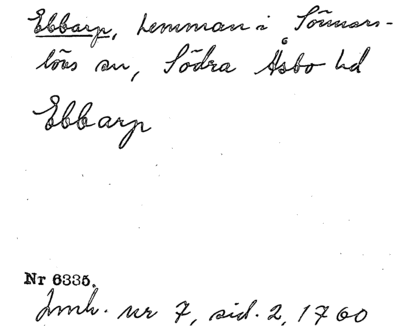 Ebbarp, hemman i Tönnars-
lövs sn, Södra Åsbo hd
Ebbarp
Nr 6335.
Jmh. nr 7, sid. 2, 1760